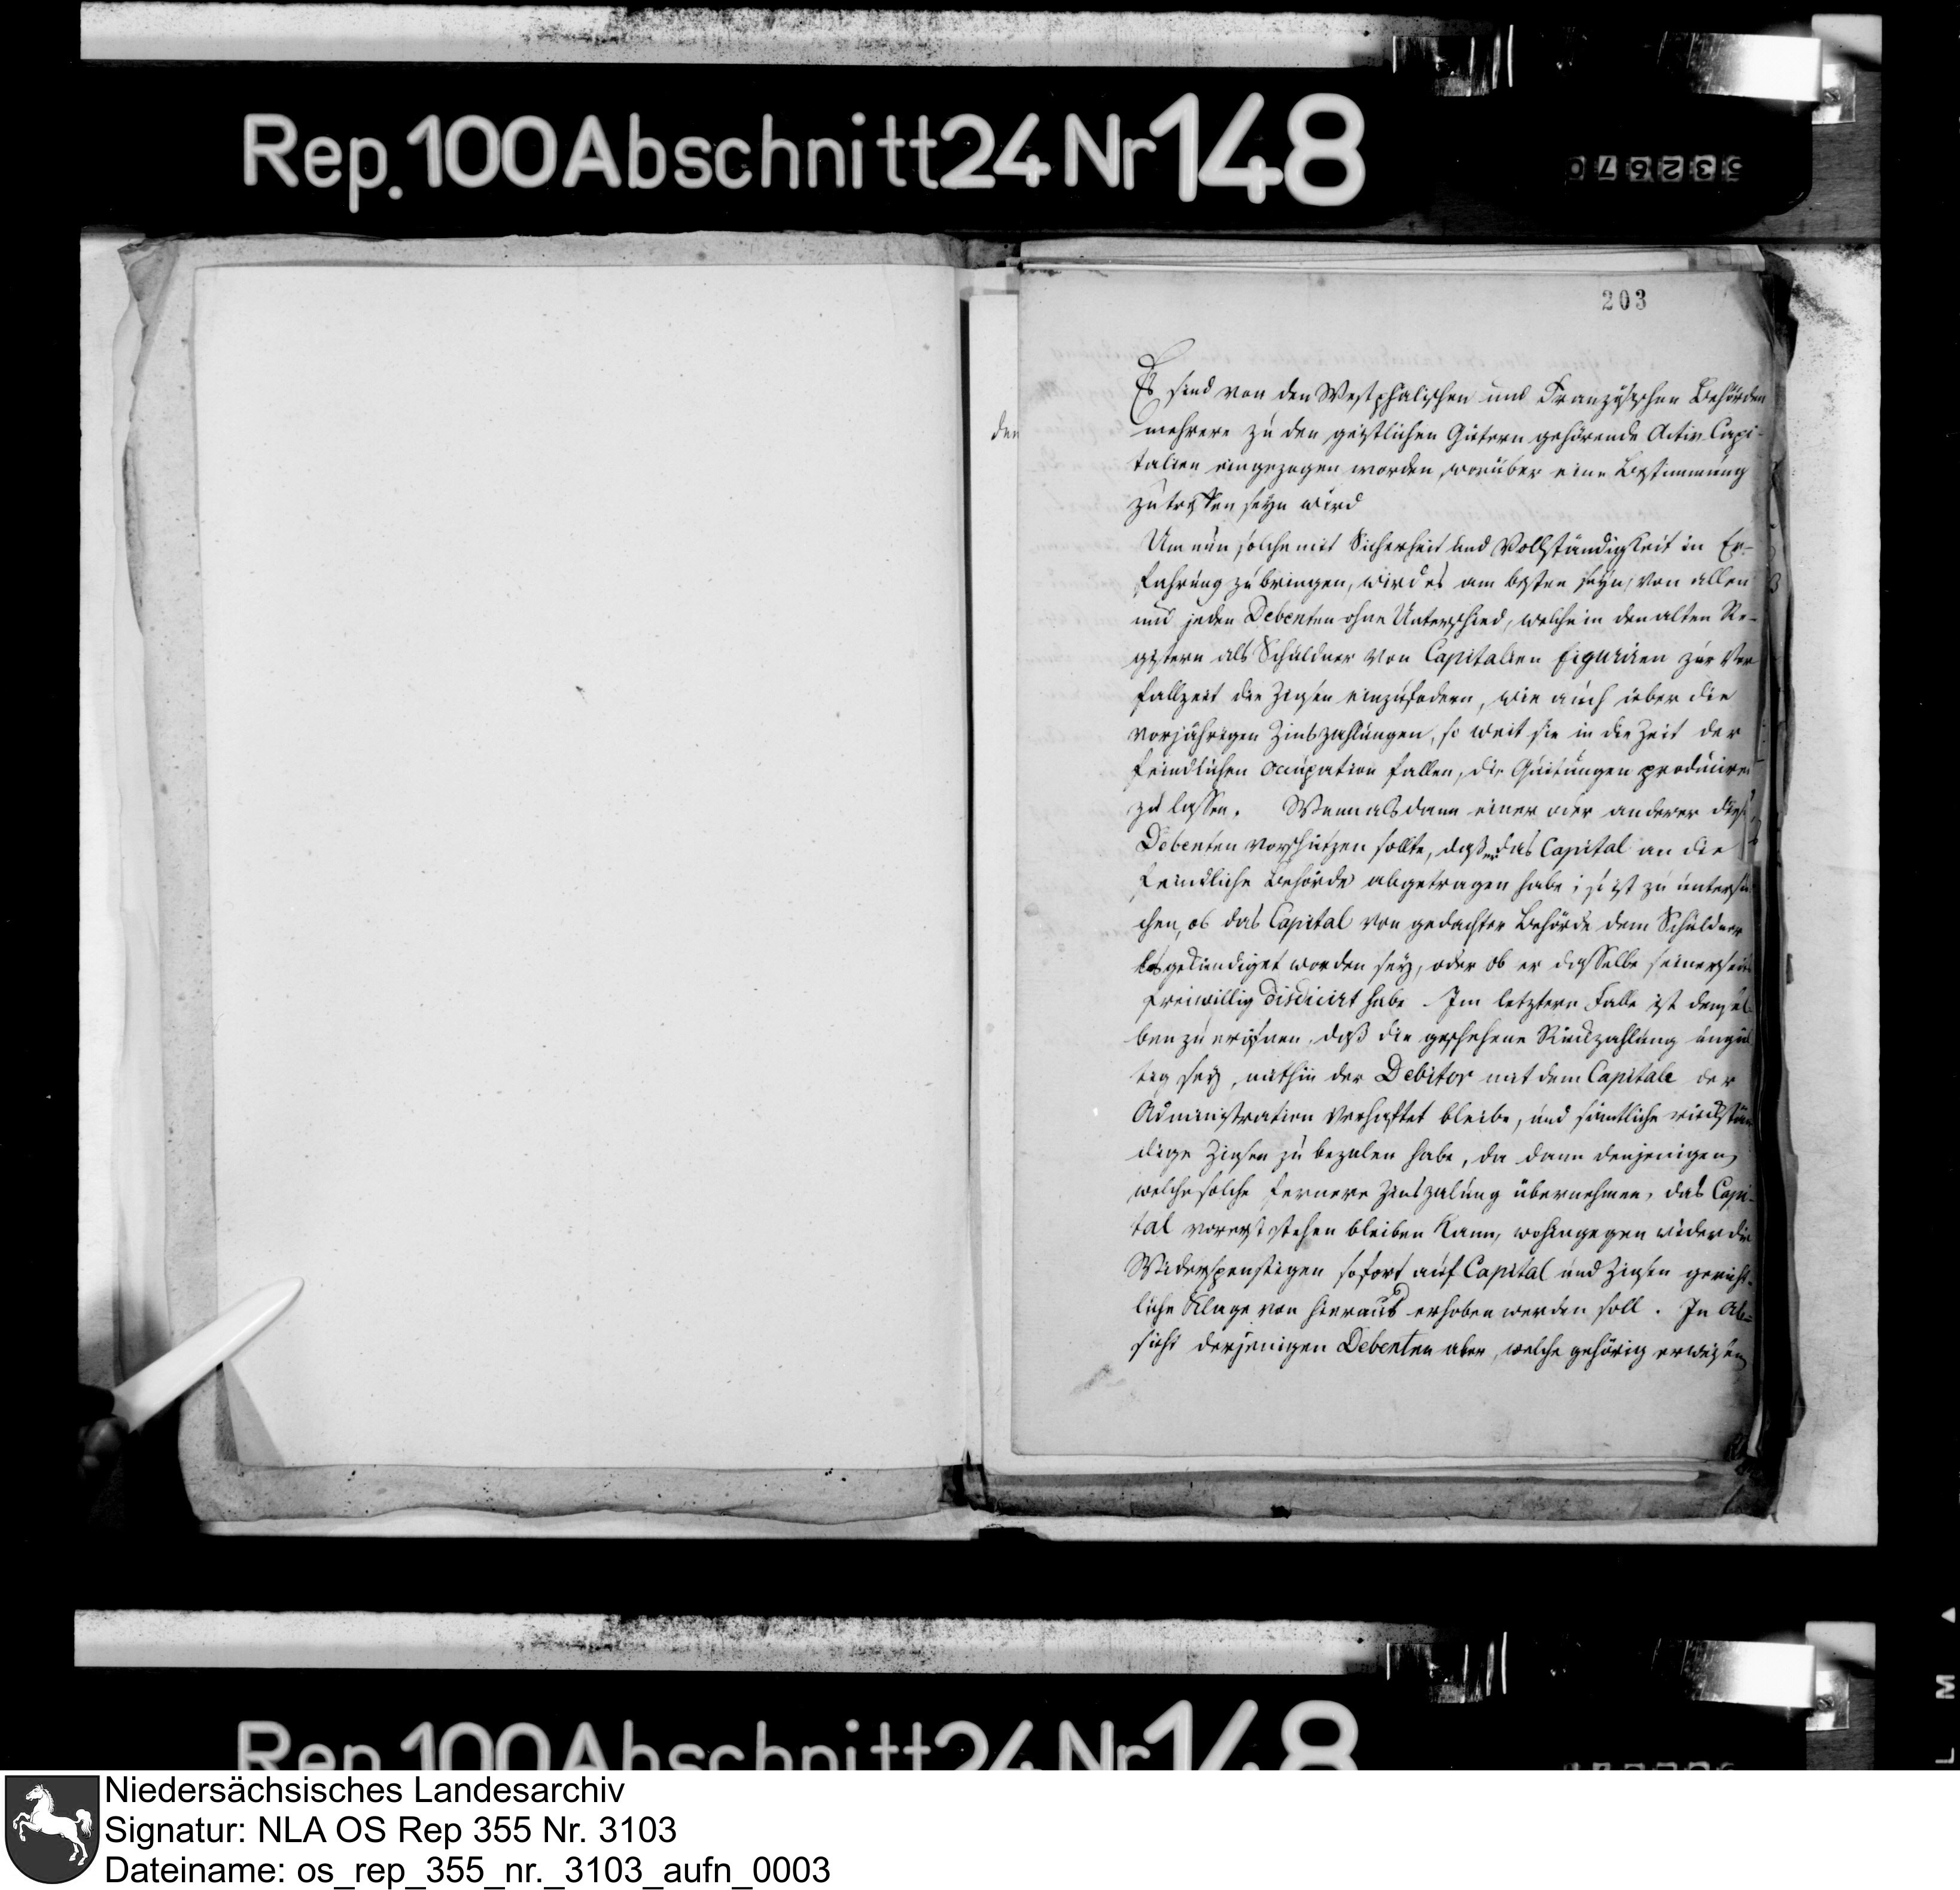 Rep. 100 Abschnitt 24 Nr 148
532670
203
den
Es sind von den Westphälischen und Französischen Behörden
mehrere zu den geistlichen Gütern gehörende Activ-Capi-
talien eingezogen worden, worüber eine Bestimmung
zu treffen seyn wird
Um nun solche mit Sicherheit und Vollständigkeit in Er-
fahrung zu bringen, wird es am besten seyn, von allen
und jeden Debenten ohne Unterschied, welche in den alten Re-
gistern als Schuldner von Capitalien figuriren zur Ver
fallzeit die Zinsen einzufodern, wie auch über die
vorjährigen Zinszahlungen, so weit sie in die Zeit der
feindlichen Occupation fallen, die Quitungen produciren
zu lassen. Wenn alsdann einer oder anderer dieser
Debenten vorschützen sollte, daß er das Capital an die
feindliche Behörde abgetragen habe; so ist zu untersu
chen, ob das Capital von gedachter Behörde dem Schuldner
losgekündiget worden sey, oder ob er dasselbe seinerseits
freiwillig disdicirt habe. Im letztern Falle ist demsel
ben zu eröfnen, daß die geschehene Rückzahlung ungül
tig sey, mithin der Debitor mit dem Capitale der
Administration verhaftet bleibe, und sämtliche rückstän
dige Zinsen zu bezalen habe, da dann denjenigen,
welche solche fernere Zinszalung übernehmen, das Capi-
tal vorerst stehen bleiben kann, wohingegen wider die
Widerspenstigen sofort auf Capital und Zinsen gericht-
liche Klage von hieraus erhoben werden soll. In Ab-
sicht derjenigen Debenten aber, welche gehörig erweisen
Rep. 100 Abschnitt 24 Nr 148
Niedersächsisches Landesarchiv
Signatur: NLA OS Rep 355 Nr. 3103
Dateiname: os_rep_355_nr._3103_aufn_0003